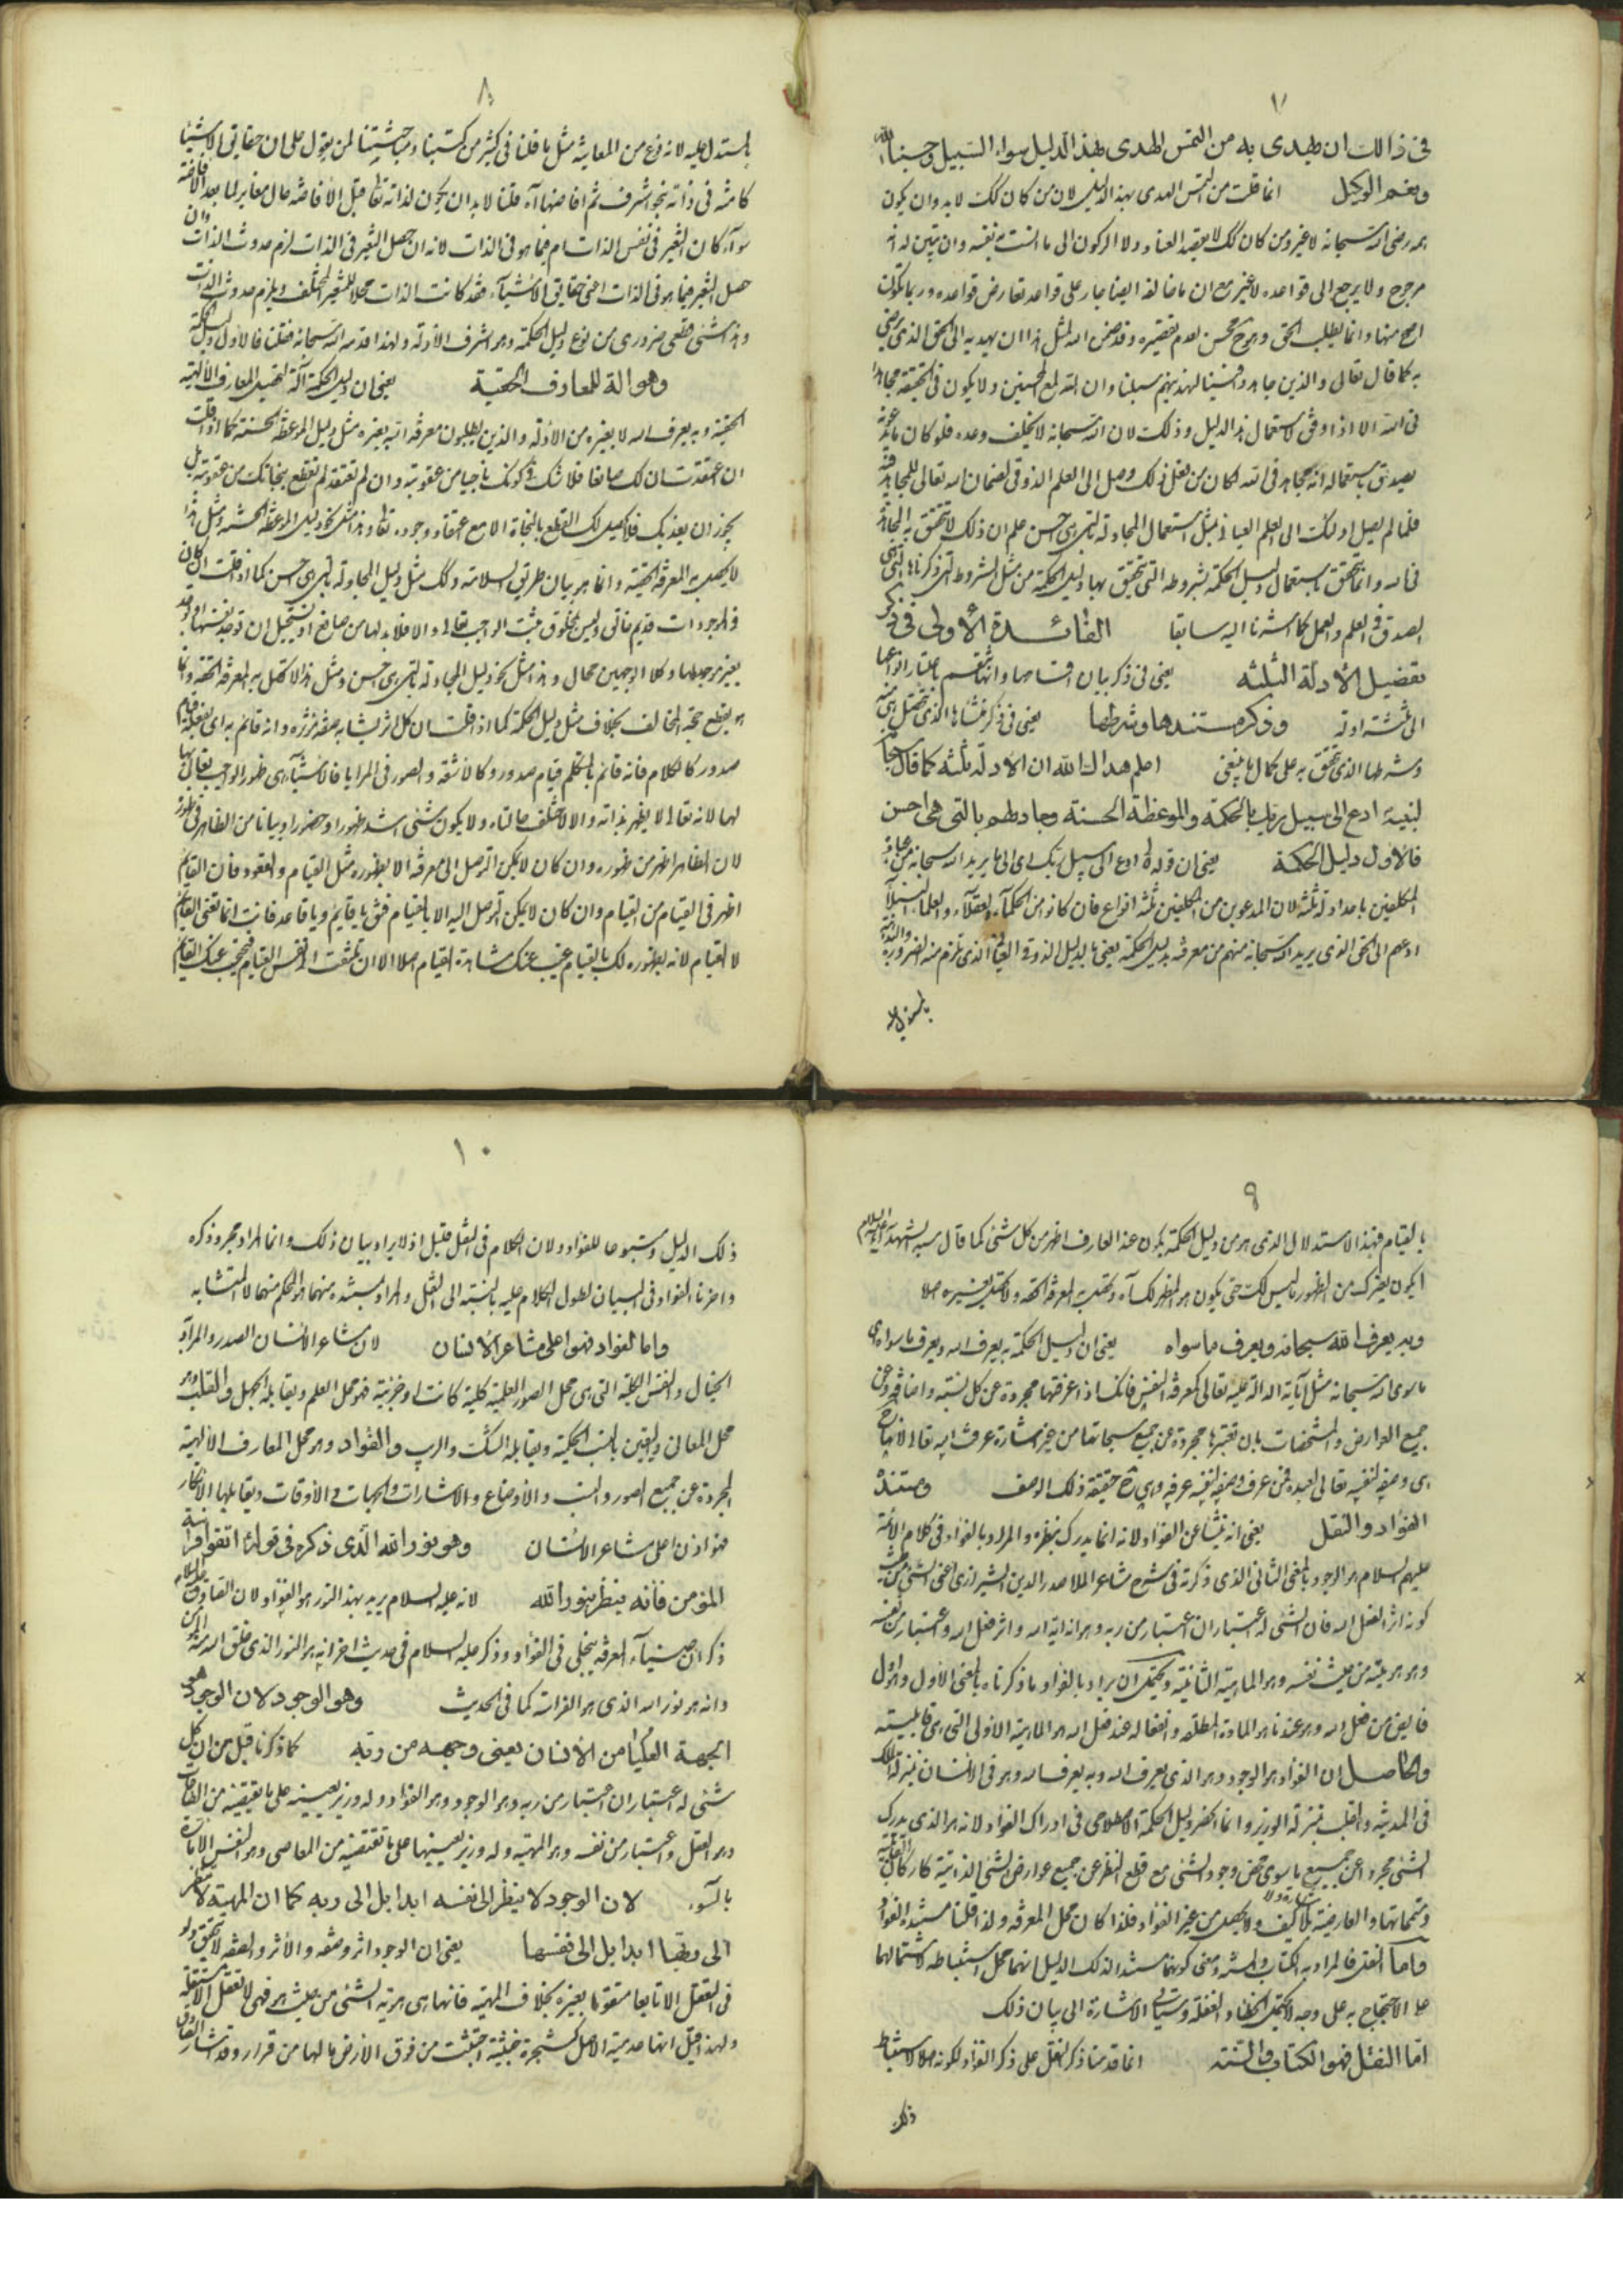 ٧
فى ذالك ان يهدى به من التمس الهدى بهذا الدليل سواء السبيل وحسبنا الله
ونعم الوكيل انما قلت من التمس الهدى بهذا الدليل لان من كان كك لا بد وان يكون
همه رضى الله سبحانه لا غير ومن كان كك لا يقصد العناد ولا الركون الى ما انست به نفسه وان تبين له انه
مرجوح ولا يرجع الى قواعده لا غير مع ان ما خالفه ايضا جار على قواعد تعارض قواعده وربما تكون
اصح منها وانما يطلب الحق وهو ح محسن لعدم تقصيره وقد ضمن الله لمثل هذا ان يهديه الى الحق الذى يرضى
به كما قال تعالى والذين جاهدوا فينا لنهدينهم سبلنا وان الله لمع المحسنين ولا يكون فى الحقيقة مجاهدا
فى الله الا اذا وفق لاستعمال هذا الدليل وذلك لان الله سبحانه لا يخلف وعده فلو كان ما عرفته
يصدق باستعماله انه مجاهد فى الله لكان من فعل ذلك وصل الى العلم الذوقى لضمان الله تعالى للمجاهد فيه
فلما لم يصل اولئك الى العلم العيانى بمثل استعمال المجادلة بالتى هى احسن علم ان ذلك لا تتحقق به المجاهدة
فى الله وانما تتحقق باستعمال دليل الحكمة بشروطه التى يتحقق بها دليل الحكمة من مثل الشروط التى ذكرناها التى هى
الصدق فى العلم والعمل كما اشرنا اليه سابقا الفائدة الأولى فى ذكر
تفصيل الأدلة الثلثة يعنى فى ذكر بيان اقسامها وانها تنقسم باعتبار انواعها
الى ثلثة ادلة وذكر مستندها وشرطها يعنى فى ذكر منشاها الذى تحصل منه
وشرطها الذى تتحقق به على كمال ما ينبغى اعلم هداك الله ان الادلة ثلثه كما قال سبحانه
لنبيه ادع الى سبيل ربك بالحكمة والموعظة الحسنة وجادلهم بالتى هى احسن
فالاول دليل الحكمة يعنى ان قوله تع ادع الى سبيل ربك اى الى ما يريد الله سبحانه من عباده
المكلفين باحد ادلة ثلثة لان المدعوين من المكلفين ثلثة انواع فان كانوا من الحكمآء العقلآء والعلماء النبلآء
ادعهم الى الحق الذى يريد الله سبحانه منهم من معرفته بدليل الحكمة يعنى بالدليل الذوقى العيانى الذى تلزم منه الضرورة والبداهة
٨
المستدل عليه لانه نوع من المعاينة مثل ما قلنا فى كثير من كتبنا ومباحثتنا لمن يقول على ان حقايق الاشياء
كامنة فى ذاته بنحو اشرف ثم افاضها آه قلنا لا بد ان يكون لذاته تعالى قبل الأفاضة حال مغاير لما بعد الافاضة
سوآء كان التغير فى نفس الذات ام فيما هو فى الذات لانه ان حصل التغير فى الذات لزم حدوث الذات وان
حصل التغير فيما هو فى الذات اعنى حقايق الاشيآء فقد كانت الذات محلا للمتغير المختلف ويلزم حدوث الذات
وهذا شئ قطعى ضرورى من نوع دليل الحكمة وهو اشرف الأدلة ولهذا قدمه الله سبحانه فقلنا فالأول دليل الحكمة
وهو الة للمعارف الحقية يعنى ان دليل الحكمة آلة لتحصيل المعارف الآلهية
الحقية وبه يعرف الله لا بغيره من الأدلة والذين يطلبون معرفة الله بغيره مثل دليل الموعظة الحسنة كما اذا قلت
ان اعتقدت ان لك صانعا فلا شك فى كونك ناجيا من عقوبته وان لم تعتقد لم تقطع بنجاتك من عقوبته بل
يجوز ان يعذبك فلا يحصل لك القطع بالنجاة الا مع اعتقاد وجوده تعالى وهذا مثل نحو دليل الموعظة الحسنة ومثل هذا
لا يحصل به المعرفة الحقية وانما هو بيان طريق السلامة وكك مثل دليل المجادلة بالتى هى احسن كما اذا قلت ان كان
فى الموجودات قديم خالق وليس بمخلوق ثبت الواجب تعالى والا فلا بد لها من صانع اذ يستحيل ان توجد نفسها او توجد
بغير موجد لها وكلا الوجهين محال وهذا مثل نحو دليل المجادلة بالتى هى احسن ومثل هذا لا تحصل به المعرفة الحقة وانما
هو يقطع حجة المخالف بخلاف مثل دليل الحكمة كما اذا قلت ان كل اثر يشابه صفة مؤثره وانه قائم به اى بفعله قيام
صدور كالكلام فانه قائم بالمتكلم قيام صدور وكالاشعة والصور فى المرايا فالاشيآء هى ظهور الواجب تعالى بها
لها لانه تعالى لا يظهر بذاته والا لاختلف حالتاه ولا يكون شئ اشد ظهورا وحضورا وبيانا من الظاهر فى ظهوره
لان الظاهر اظهر من ظهوره وان كان لا يمكن التوصل الى معرفته الا بظهوره مثل القيام والقعود فان القائم
اظهر فى القيام من القيام وان كان لا يمكن التوصل اليه الا بالقيام فتقول يا قائم ويا قاعد فانت انما تعنى القائم
لا القيام لانه بظهوره لك بالقيام غيب عنك مشاهدة القيام اصلا الا ان تلتفت الى نفس القيام فيحتجب عنك القائم
٩
بالقيام فبهذا الاستدلال الذى هو من دليل الحكمة يكون عند العارف اظهر من كل شئ كما قال سيد الشهدآء عليه السلام
ايكون لغيرك من الظهور ما ليس لك حتى يكون هو المظهر لك آه وتحصل به المعرفة الحقة ولا تحصل بغيره اصلا
وبه يعرف الله سبحانه ويعرف ما سواه يعنى ان دليل الحكمة به يعرف الله ويعرف ما سواه اى
ما سوى الله سبحانه مثل آياته الدالة عليه تعالى كمعرفة النفس فانك اذا عرفتها مجردة عن كل نسبة واضافة وعن
جميع العوارض والمشخصات بان تعتبرها مجردة عن جميع سبحاتها من غير اشارة عرفت الله تعالى لانها ح
هى وصفه لنفسه تعالى لعبده فمن عرف وصفه لنفسه عرفه وهى ح حقيقة ذلك الوصف ومستنده
الفؤاد والنقل يعنى انه ينشأ عن الفؤاد لانه انما يدرك بنظره والمراد بالفؤاد فى كلام الأئمة
عليهم السلام هو الوجود بالمعنى الثانى الذى ذكرته فى شرح مشاعر الملا صدر الدين الشيرازى اعنى الشئ من حيث
كونه اثرا لفعل الله فان الشئ له اعتباران اعتبار من ربه وهو انه اية الله واثر فعل الله واعتبار من نفسه
وهو هويته من حيث نفسه وهو الماهية الثانية ويحتمل ان يراد بالفؤاد ما ذكرناه بالمعنى الأول وهو اول
فايض من فعل الله وهو عندنا هو المادة المطلقة وانفعاله عند فعل الله هو الماهية الاولى التى هى قابليته
والحاصل ان الفؤاد هو الوجود وهو الذى يعرف الله وبه يعرف الله وهو فى الانسان بمنزلة الملك
فى المدينة والقلب بمنزلة الوزير وانما انحصر دليل الحكمة الاصطلاحى فى ادراك الفؤاد لانه هو الذى يدرك
الشئ مجردا عن جميع ما سوى محض وجود الشئ مع قطع النظر عن جميع عوارض الشئ الذاتية كاركان القابلية
ومتمماتها والعارضية بلا كيف ولا اشارة ولا يحصل من غير الفؤاد فلذا كان محل المعرفة ولذا قلنا مستنده الفؤاد
واما النقل فالمراد به الكتاب والسنة ومعنى كونهما مستندا لذلك الدليل انهما محل استنباطه لاشتمالهما
على الاحتجاج به على وجه لا يحتمل الخطاء والغفلة وسيأتى الاشارة الى بيان ذلك
اما النقل فهو الكتاب والسنة انما قدمنا ذكر النقل على ذكر الفؤاد لكونه اصلا لاستنباط
ذلك
١٠
ذلك الدليل ومتبوعا للفؤاد ولان الكلام فى النقل قليل اذ لا يراد بيان ذلك وانما المراد مجرد ذكره
واخرنا الفؤاد فى البيان لطول الكلام عليه بالنسبة الى النقل والمراد بمستنده منهما هو المحكم منهما لا المتشابه
واما الفؤاد فهو اعلى مشاعر الانسان لان مشاعر الانسان الصدر والمراد به
الخيال والنفس الكلية التى هى محل الصور العلمية كلية كانت او جزئية فهو محل العلم ويقابله الجهل والقلب وهو
محل المعانى واليقين بالنسب الحكمية ويقابله الشك والريب والفؤاد وهو محل المعارف الالهية
المجردة عن جميع الصور والنسب والأوضاع والاشارات والجهات والأوقات ويقابلها الانكار
فهو اذن اعلى مشاعر الانسان وهو نور الله الذى ذكره فى قوله ع اتقوا فراسة
المؤمن فانه ينظر بنور الله لانه عليه السلام يريد بهذا النور هو الفؤاد لان الصادق عليه السلام
ذكر ان ضيآء المعرفة يتجلى فى الفؤاد وذكر عليه السلام فى حديث اخر انه هو النور الذى خلق الله منه المؤمن
وانه هو نور الله الذى هو الفراسة كما فى الحديث وهو الوجود لان الوجود هو
الجهة العليا من الانسان يعنى وجهه من ربه كما ذكرنا قبل من ان كل
شئ له اعتباران اعتبار من ربه وهو الوجود وهو الفؤاد وله وزير يعينه على ما يقتضيه من الطاعات
وهو العقل واعتبار من نفسه وهو المهية وله وزير يعينها على ما تقتضيه من المعاصى وهو النفس الامارة
بالسوء لان الوجود لا ينظر الى نفسه ابدا بل الى ربه كما ان المهية لا تنظر
الى ربها ابدا بل الى نفسها يعنى ان الوجود اثر وصفة والأثر والصفة لا تحقق له
فى التعقل الا تابعا متقوما بغيره بخلاف المهية فانها هى هوية الشئ من حيث هو فهى لا تعقل الا مستقلة
ولهذا قيل انها عدمية الاصل كشجرة خبيثة اجتثت من فوق الأرض ما لها من قرار وقد اشار